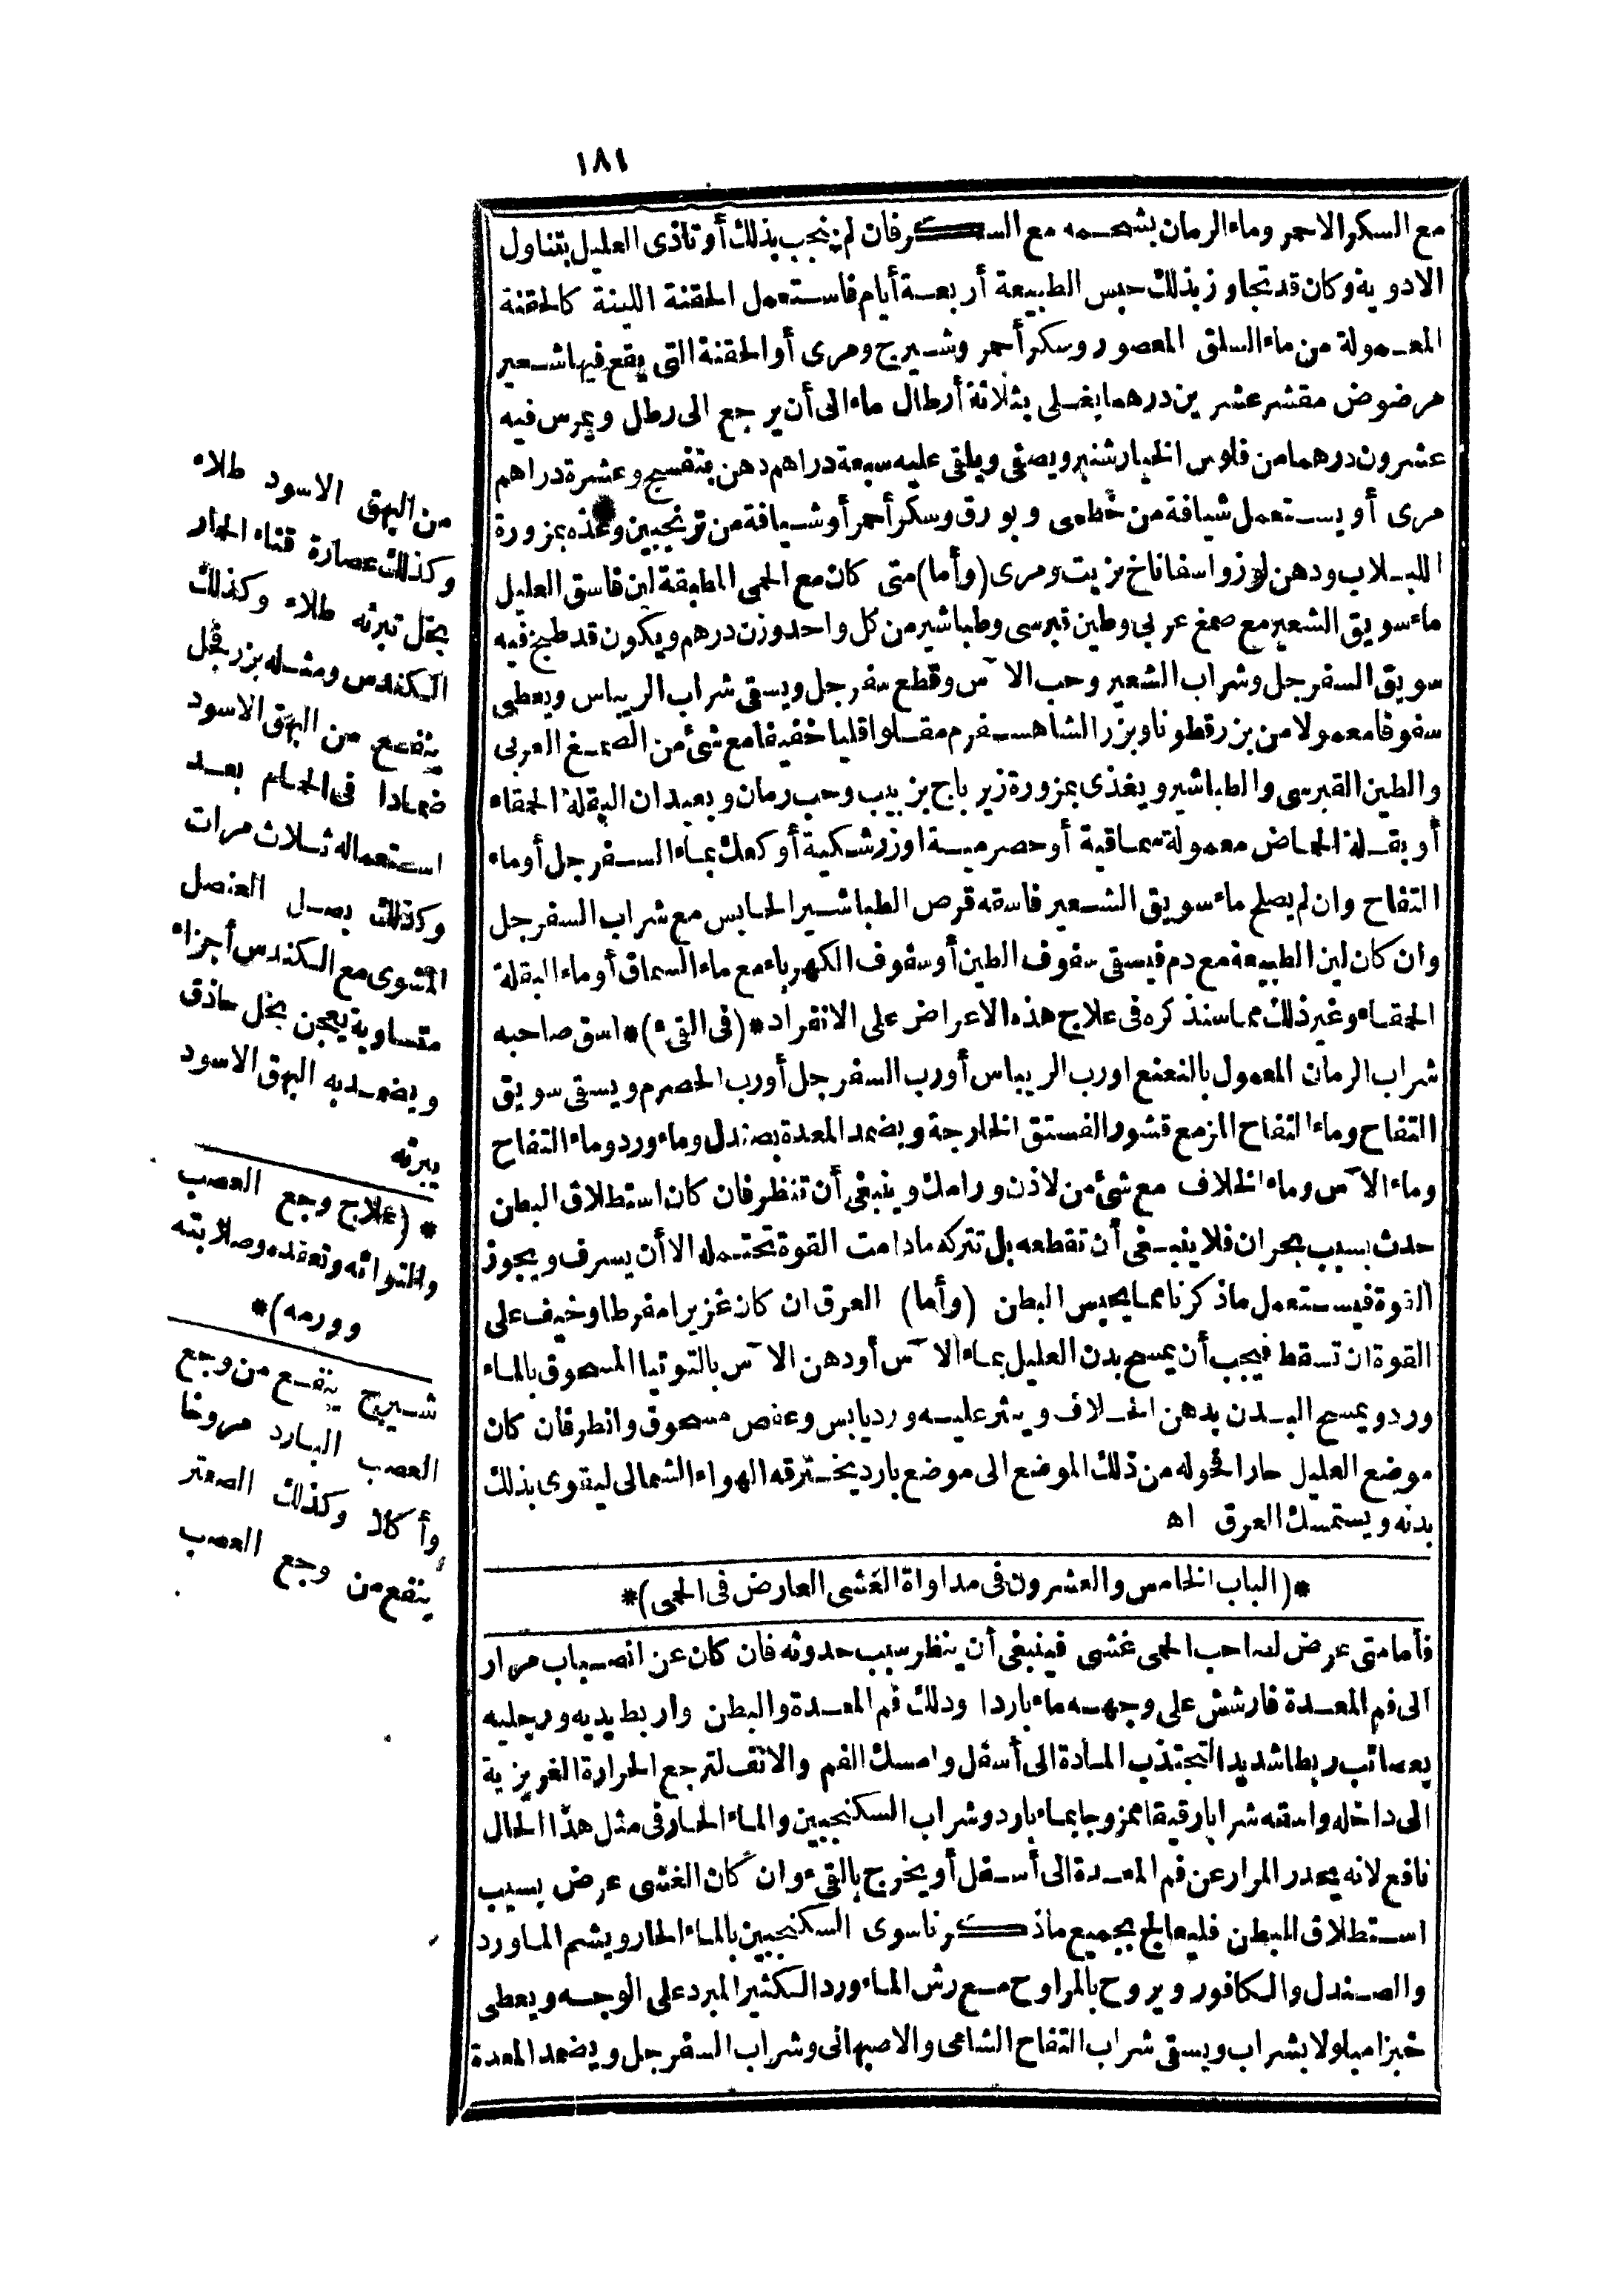 ١٨١
مع السكر الاحمر وماء الرمان بشحمه مع السكر فان لم ينجب بذلك أو تأذى العليل بتناول
الادوية وكان قد تجاوز بذلك حبس الطبيعة أربعة أيام فاستعمل الحقنة اللينة كالحقنة
المعمولة من ماء السلق المعصور وسكر أحمر وشيرج ومرى أو الحقنة التى يقع فيها شعير
مرضوض مقشر عشرين درهما يغلى بثلاثة أرطال ماء الى أن يرجع الى رطل ويمرس فيه
عشرون درهما من فلوس الخيار شنبر ويصفى ويلقى عليه سبعة دراهم دهن بنفسج وعشرة دراهم
مرى أو يستعمل شيافة من خطمى وبورق وسكر أحمر أو شيافة من ترنجبين وغذه بمزورة
اللبلاب ودهن لوز واسفاناخ بزيت ومرى (وأما) متى كان مع الحمى المطبقة لين فاسق العليل
ماء سويق الشعير مع صمغ عربى وطين قبرسى وطباشير من كل واحد وزن درهم ويكون قد طبخ فيه
سويق السفرجل وشراب الشعير وحب الآس وقطع سفرجل ويسقى شراب الريباس ويعطى
سفوفا معمولا من بزرقطونا وبزر الشاهسفرم مقلوا قليا خفيفا مع شئ من الصمغ العربى
والطين القبرسى والطباشير ويغذى بمزورة زيرباج بزبيب وحب رمان وبعيدان البقلة الحمقاء
أو بقلة الحماض معمولة سماقية أو حصرمية اوزرشكية أو كعك بماء السفرجل أو ماء
التفاح وان لم يصلح ماء سويق الشعير فاسقه قرص الطباشير الحابس مع شراب السفرجل
وان كان لين الطبيعة مع دم فيسقى سفوف الطين أو سفوف الكهرباء مع ماء السماق أو ماء البقلة
الحمقاء وغير ذلك مما سنذكره فى علاج هذه الاعراض على الانفراد *(فى القىء)* اسق صاحبه
شراب الرمان المعمول بالنعنع اورب الريباس أورب السفرجل أورب الحصرم ويسقى سويق
التفاح وماء التفاح المز مع قشور الفستق الخارجة ويضمد المعدة بصندل وماء ورد وماء التفاح
وماء الآس وماء الخلاف مع شئ من لاذن ورامك وينبغى أن تنظر فان كان استطلاق البطن
حدث بسبب بحران فلا ينبغى أن تقطعه بل تتركه مادامت القوة تحتمله الا أن يسرف ويجوز
القوة فيستعمل ماذكرنا مما يحبس البطن (وأما) العرق ان كان غزيرا مفرطا وخيف على
القوة ان تسقط فيجب أن يمسح بدن العليل بماء الآس أو دهن الآس بالتوتيا المسحوق بالماء
ورد ويمسح البدن بدهن الخلاف وينثر عليه ورد يابس وعفص مسحوق وانظر فان كان
موضع العليل حارا فحوله من ذلك الموضع الى موضع بارد يخترقه الهواء الشمالى ليقوى بذلك
بدنه ويستمسك العرق اه
*(الباب الخامس والعشرون فى مداواة الغشى العارض فى الحمى)*
فأما متى عرض لصاحب الحمى غشى فينبغى أن ينظر سبب حدوثه فان كان عن انصباب مرار
الى فم المعدة فارشش على وجهه ماء باردا ودلك فم المعدة والبطن واربط يديه ورجليه
بعصائب ربطا شديدا لتجتذب المادة الى أسفل وامسك الفم والانف لترجع الحرارة الغريزية
الى داخله واسقه شرابا رقيقا ممزوجا بماء بارد وشراب السكنجبين والماء الحار فى مثل هذا الحال
نافع لانه يحدر المرار عن فم المعدة الى أسفل أو يخرج بالقىء وان كان الغشى عرض بسبب
استطلاق البطن فليعالج بجميع ماذكرنا سوى السكنجبين بالماء الحار ويشم الماورد
والصندل والكافور ويروح بالمراوح مع رش الماء ورد الكثير المبرد على الوجه ويعطى
خبزا مبلولا بشراب ويسقى شراب التفاح الشامى والاصبهانى وشراب السفرجل ويضمد المعدة
من البهق الاسود طلاء
وكذلك عصارة قثاء الحمار
بخل تبرئه طلاء وكذلك
الكندس ومثله بزر فجل
ينفع من البهق الاسود
ضمادا فى الحمام بعد
استعماله ثلاث مرات
وكذلك بصل العنصل
المشوى مع الكندس أجزاء
متساوية يعجن بخل حاذق
ويضمد به البهق الاسود
يبرئه
*(علاج وجع العصب
والتوائه وتعقده وصلابته
وورمه)*
شيرج ينفع من وجع
العصب البارد مروخا
وأكلا وكذلك الصعتر
ينفع من وجع العصب